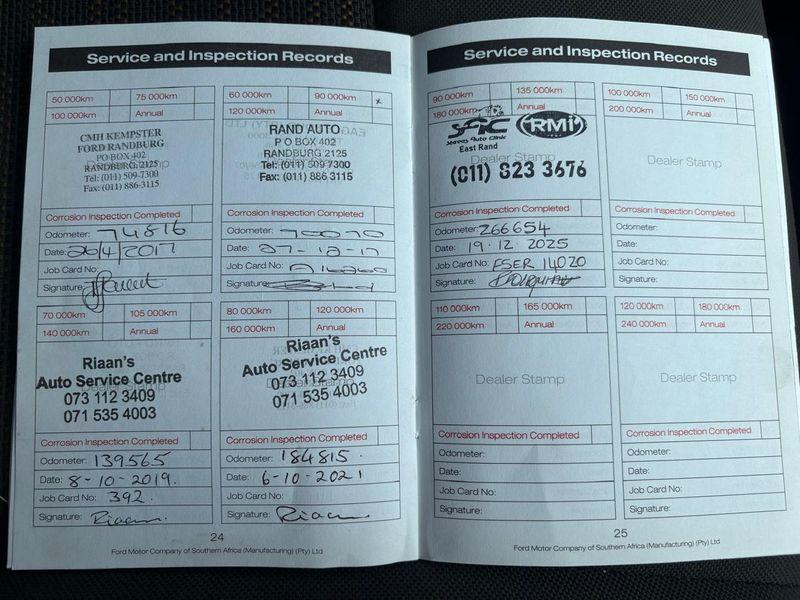 Service and Inspection Records
50 000km 75 000km
100 000km Annual
CMH KEMPSTER
FORD RANDBURG
PO BOX 402
RANDBURG 2125
Tel: (011) 509-7300
Fax: (011) 886-3115
Corrosion Inspection Completed
Odometer: 74816
Date: 26/4/2017
Job Card No:
Signature:
60 000km 90 000km x
120 000km Annual
RAND AUTO
P O BOX 402
RANDBURG 2125
Tel: (011) 509 7300
Fax: (011) 886 3115
Corrosion Inspection Completed
Odometer: 70070
Date: 27-12-17
Job Card No:
Signature:
70 000km 105 000km
140 000km Annual
Riaan's
Auto Service Centre
073 112 3409
071 535 4003
Corrosion Inspection Completed
Odometer: 139565
Date: 8-10-2019.
Job Card No: 392.
Signature: Riaan
80 000km 120 000km
160 000km Annual
Riaan's
Auto Service Centre
073 112 3409
071 535 4003
Corrosion Inspection Completed
Odometer: 184815.
Date: 6-10-2021
Job Card No:
Signature: Riaan
24
Ford Motor Company of Southern Africa (Manufacturing) (Pty) Ltd
Service and Inspection Records
90 000km 135 000km
180 000km Annual
RMI
Auto Clinic
East Rand
Dealer Stamp
(011) 823 3676
Corrosion Inspection Completed
Odometer: 266654
Date: 19.12.2025
Job Card No: FSER 14020
Signature:
100 000km 150 000km
200 000km Annual
Dealer Stamp
Corrosion Inspection Completed
Odometer:
Date:
Job Card No:
Signature:
110 000km 165 000km
220 000km Annual
Dealer Stamp
Corrosion Inspection Completed
Odometer:
Date:
Job Card No:
Signature:
120 000km 180 000km
240 000km Annual
Dealer Stamp
Corrosion Inspection Completed
Odometer:
Date:
Job Card No:
Signature:
25
Ford Motor Company of Southern Africa (Manufacturing) (Pty) Ltd